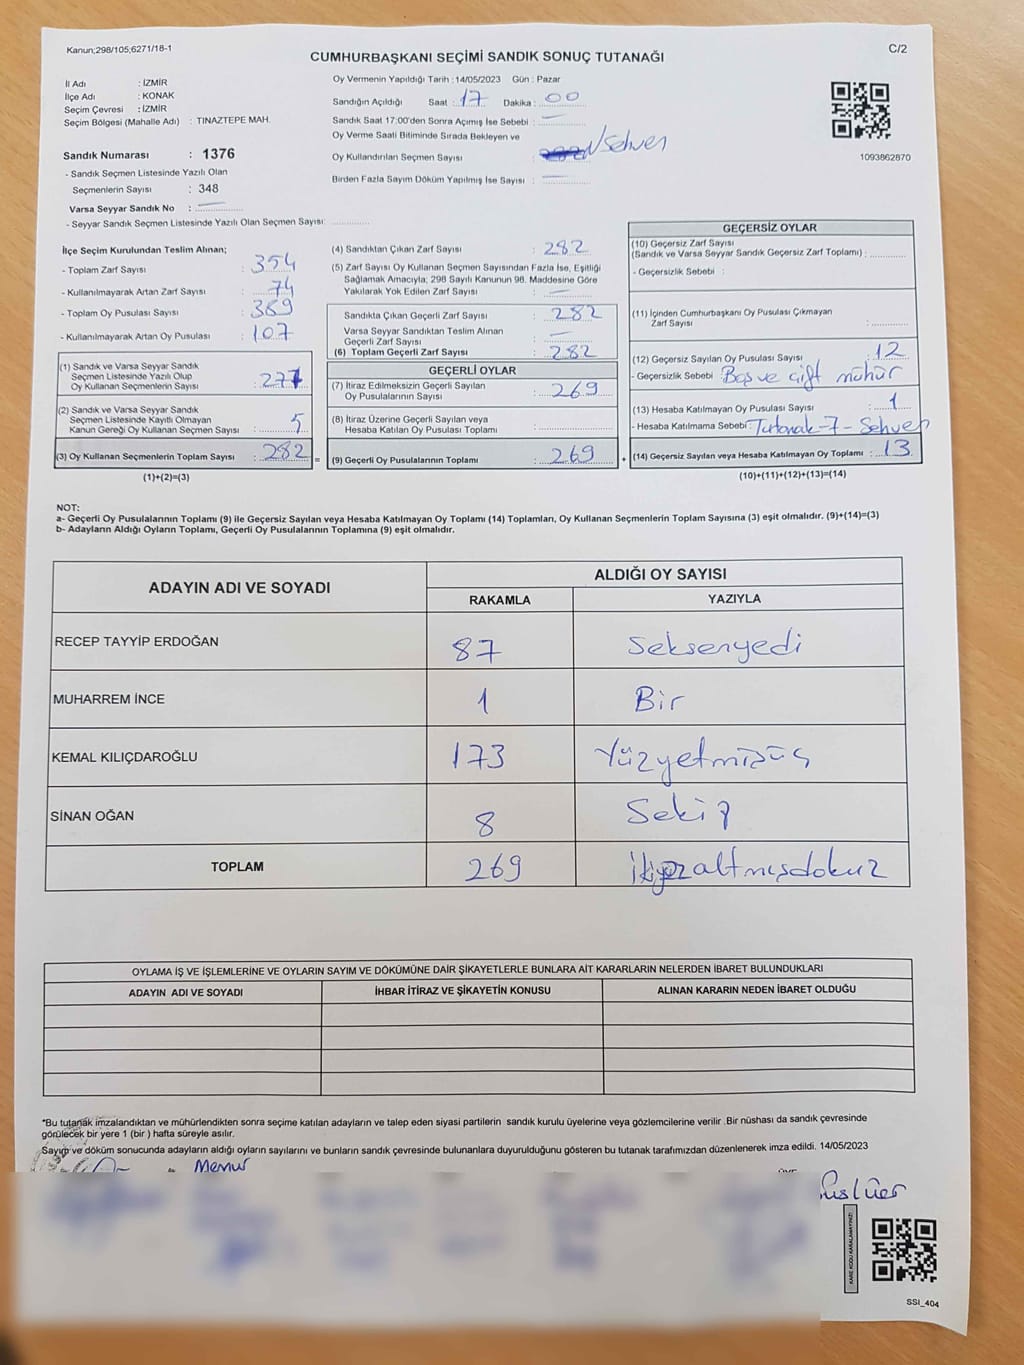 Kanun;298/105;6271/18-1
C/2
CUMHURBAŞKANI SEÇİMİ SANDIK SONUÇ TUTANAĞI
İl Adı : İZMİR
İlçe Adı : KONAK
Seçim Çevresi : İZMİR
Seçim Bölgesi (Mahalle Adı) : TINAZTEPE MAH.
Sandık Numarası : 1376
- Sandık Seçmen Listesinde Yazılı Olan
Seçmenlerin Sayısı : 348
Varsa Seyyar Sandık No :
- Seyyar Sandık Seçmen Listesinde Yazılı Olan Seçmen Sayısı:
Oy Vermenin Yapıldığı Tarih :14/05/2023 Gün : Pazar
Sandığın Açıldığı Saat : 17 Dakika : 00
Sandık Saat 17:00'den Sonra Açımış İse Sebebi :
Oy Verme Saati Bitiminde Sırada Bekleyen ve
Oy Kullandırılan Seçmen Sayısı : Sehven
Birden Fazla Sayım Döküm Yapılmış İse Sayısı :
1093862870
İlçe Seçim Kurulundan Teslim Alınan;
- Toplam Zarf Sayısı : 354
- Kullanılmayarak Artan Zarf Sayısı : 74
- Toplam Oy Pusulası Sayısı : 389
- Kullanılmayarak Artan Oy Pusulası : 107
(1) Sandık ve Varsa Seyyar Sandık
Seçmen Listesinde Yazılı Olup
Oy Kullanan Seçmenlerin Sayısı : 277
(2) Sandık ve Varsa Seyyar Sandık
Seçmen Listesinde Kayıtlı Olmayan
Kanun Gereği Oy Kullanan Seçmen Sayısı : 5
(3) Oy Kullanan Seçmenlerin Toplam Sayısı : 282 =
(1)+(2)=(3)
(4) Sandıktan Çıkan Zarf Sayısı : 282
(5) Zarf Sayısı Oy Kullanan Seçmen Sayısından Fazla İse, Eşitliği
Sağlamak Amacıyla; 298 Sayılı Kanunun 98. Maddesine Göre
Yakılarak Yok Edilen Zarf Sayısı :
Sandıkta Çıkan Geçerli Zarf Sayısı : 282
Varsa Seyyar Sandıktan Teslim Alınan
Geçerli Zarf Sayısı :
(6) Toplam Geçerli Zarf Sayısı : 282
GEÇERLİ OYLAR
(7) İtiraz Edilmeksizin Geçerli Sayılan
Oy Pusulalarının Sayısı : 269
(8) İtiraz Üzerine Geçerli Sayılan veya
Hesaba Katılan Oy Pusulası Toplamı :
(9) Geçerli Oy Pusulalarının Toplamı : 269 +
GEÇERSİZ OYLAR
(10) Geçersiz Zarf Sayısı
(Sandık ve Varsa Seyyar Sandık Geçersiz Zarf Toplamı) :
- Geçersizlik Sebebi :
(11) İçinden Cumhurbaşkanı Oy Pusulası Çıkmayan
Zarf Sayısı :
(12) Geçersiz Sayılan Oy Pusulası Sayısı : 12
- Geçersizlik Sebebi : Boş ve çift mühür
(13) Hesaba Katılmayan Oy Pusulası Sayısı : 1
- Hesaba Katılmama Sebebi: Tutanak-7-Sehven
(14) Geçersiz Sayılan veya Hesaba Katılmayan Oy Toplamı : 13
(10)+(11)+(12)+(13)=(14)
NOT:
a- Geçerli Oy Pusulalarının Toplamı (9) ile Geçersiz Sayılan veya Hesaba Katılmayan Oy Toplamı (14) Toplamları, Oy Kullanan Seçmenlerin Toplam Sayısına (3) eşit olmalıdır. (9)+(14)=(3)
b- Adayların Aldığı Oyların Toplamı, Geçerli Oy Pusulalarının Toplamına (9) eşit olmalıdır.
ADAYIN ADI VE SOYADI ALDIĞI OY SAYISI
RAKAMLA YAZIYLA
RECEP TAYYİP ERDOĞAN 87 Seksenyedi
MUHARREM İNCE 1 Bir
KEMAL KILIÇDAROĞLU 173 Yüzyetmişüç
SİNAN OĞAN 8 Sekiz
TOPLAM 269 ikiyüzaltmışdokuz
OYLAMA İŞ VE İŞLEMLERİNE VE OYLARIN SAYIM VE DÖKÜMÜNE DAİR ŞİKAYETLERLE BUNLARA AİT KARARLARIN NELERDEN İBARET BULUNDUKLARI
ADAYIN ADI VE SOYADI İHBAR İTİRAZ VE ŞİKAYETİN KONUSU ALINAN KARARIN NEDEN İBARET OLDUĞU
"Bu tutanak imzalandıktan ve mühürlendikten sonra seçime katılan adayların ve talep eden siyasi partilerin sandık kurulu üyelerine veya gözlemcilerine verilir. Bir nüshası da sandık çevresinde
görülecek bir yere 1 (bir ) hafta süreyle asılır.
Sayım ve döküm sonucunda adayların aldığı oyların sayılarını ve bunların sandık çevresinde bulunanlara duyurulduğunu gösteren bu tutanak tarafımızdan düzenlenerek imza edildi. 14/05/2023
Memur
KARE KODU KARALAMAYINIZ!
SSI_404